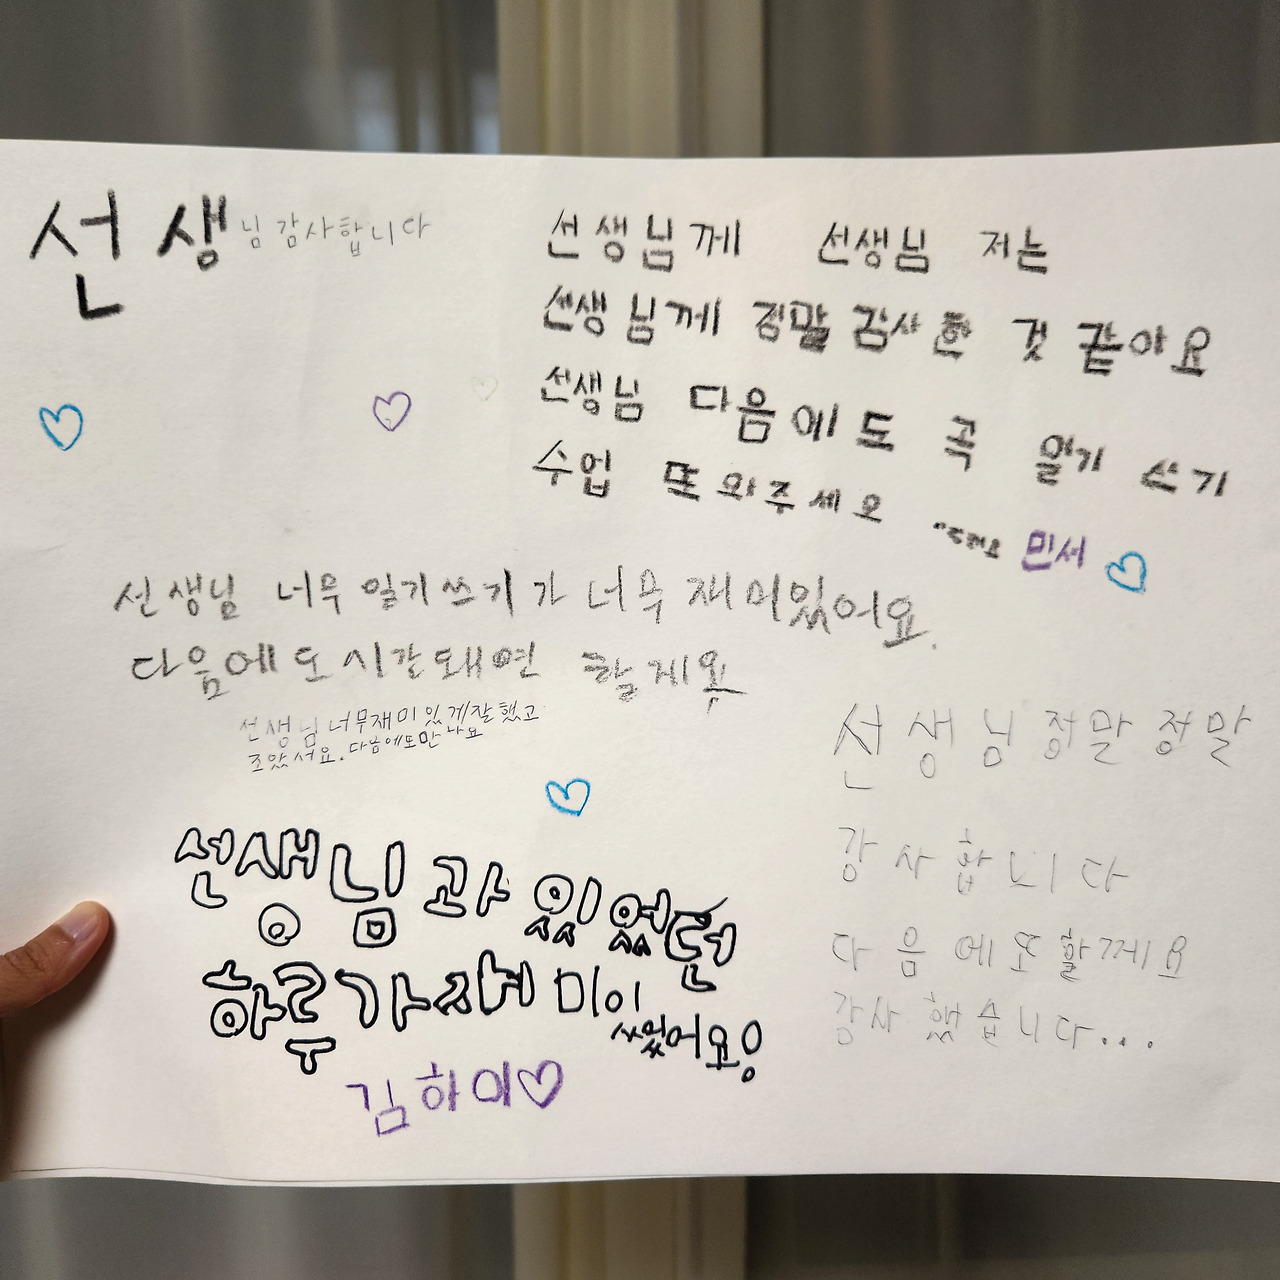 선생님 감사합니다
선생님께 선생님 저는
선생님께 정말 감사한 것 같아요
선생님 다음에도 곡 일기 쓰기
수업 또 와주세요
민서
선생님 너무 일기쓰기가 너무 재미있어요.
다음에도 시간돼면 할게요
선생님너무재미있게잘했고
조았서요. 다음에또만나요
선생님 정말 정말
강사합니다
다음에또할께요
강사했습니다...
선생님과 있었던
하루가 재미이
ㅆ었어요!
김하미